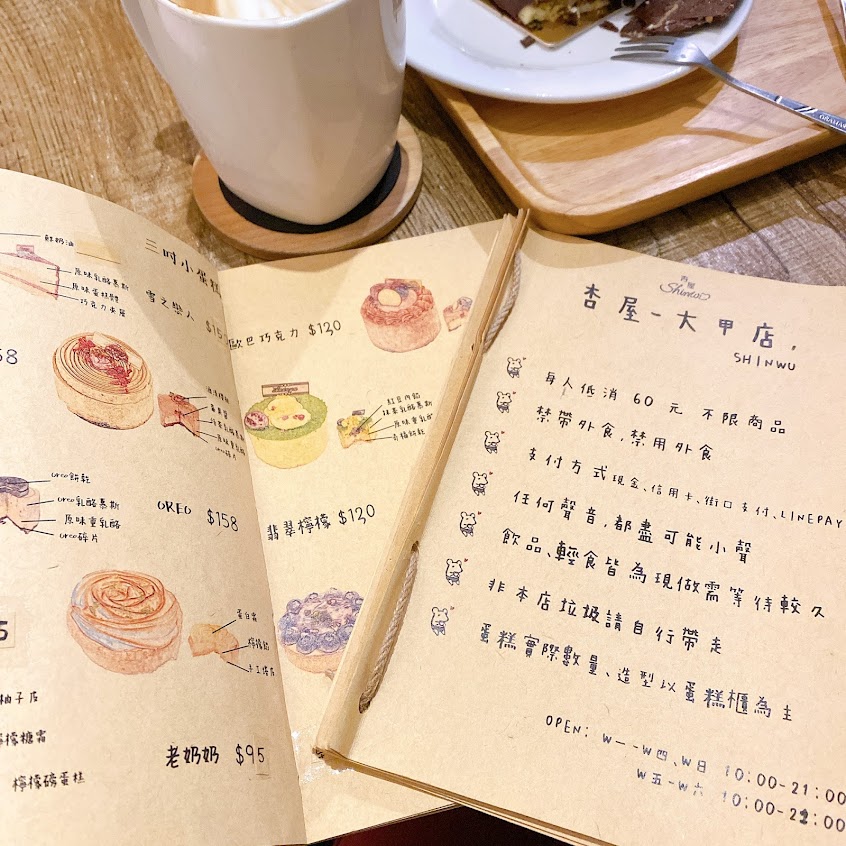 鮮奶油
原味乳酪慕斯
原味蛋糕體
巧克力夾層
三吋小蛋糕
雪之戀人 $15
58
oreo餅乾
oreo乳酪慕斯
原味重乳酪
oreo碎片
原味重乳酪
oreo碎片
OREO $158
蛋白霜
檸檬餡
手工塔皮
5
柚子皮
檸檬糖霜
檸檬磅蛋糕
老奶奶 $95
歐巴巧克力 $130
紅豆內餡
抹茶乳酪慕斯
原味重乳酪
奇福餅乾
翡翠檸檬 $130
杏屋
Shinwu
杏屋-大甲店,
SHINWU
每人低消 60 元 不限商品
禁帶外食,禁用外食
支付方式 現金、信用卡、街口支付、LINEPAY
任何聲音,都盡可能小聲
飲品、輕食皆為現做需等待較久
非本店垃圾請自行帶走
蛋糕實際數量、造型以蛋糕櫃為主
OPEN: W一-W四、W日 10:00-21:00
W五-W六 10:00-22:00